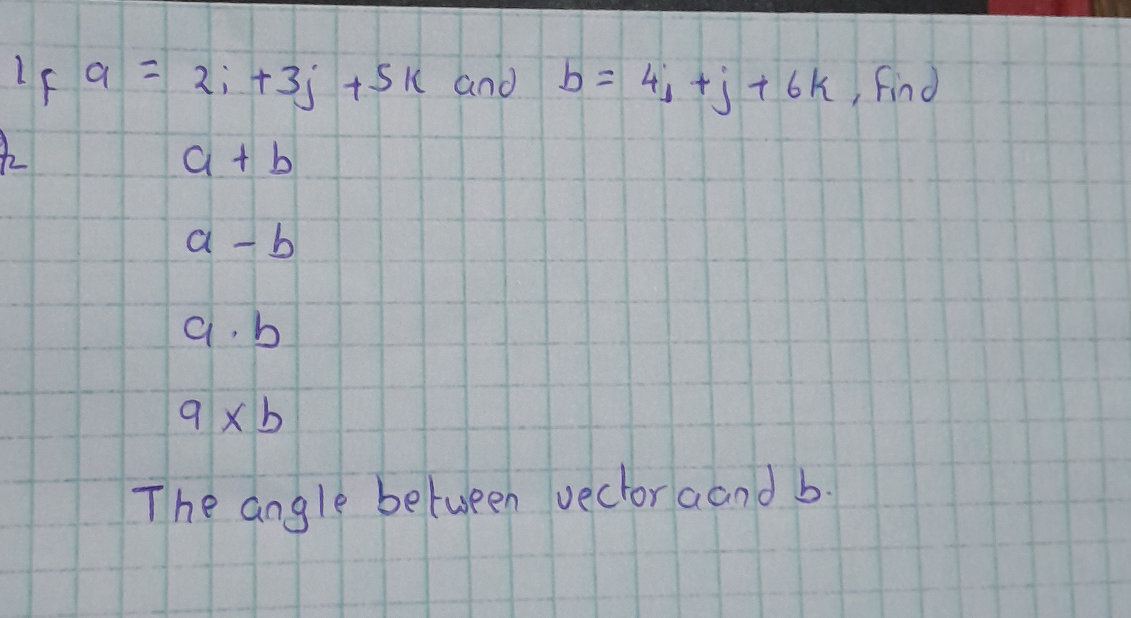 If a = 2i + 3j + 5k and b = 4i + j + 6k, find
a + b
a - b
a . b
a x b
The angle between vector a and b.